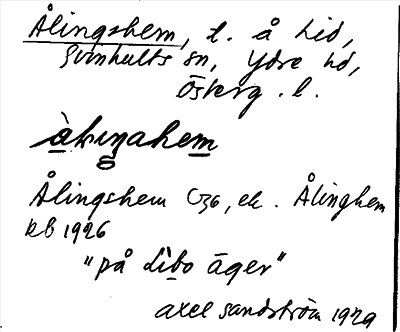 Ålingshem, t. å Lid,
Svinhults sn, Ydre hd,
Österg. l.
Ålingshem G36, ek. Ålinghem
kb 1926
"på Libo äger"
Axel Sandström 1929